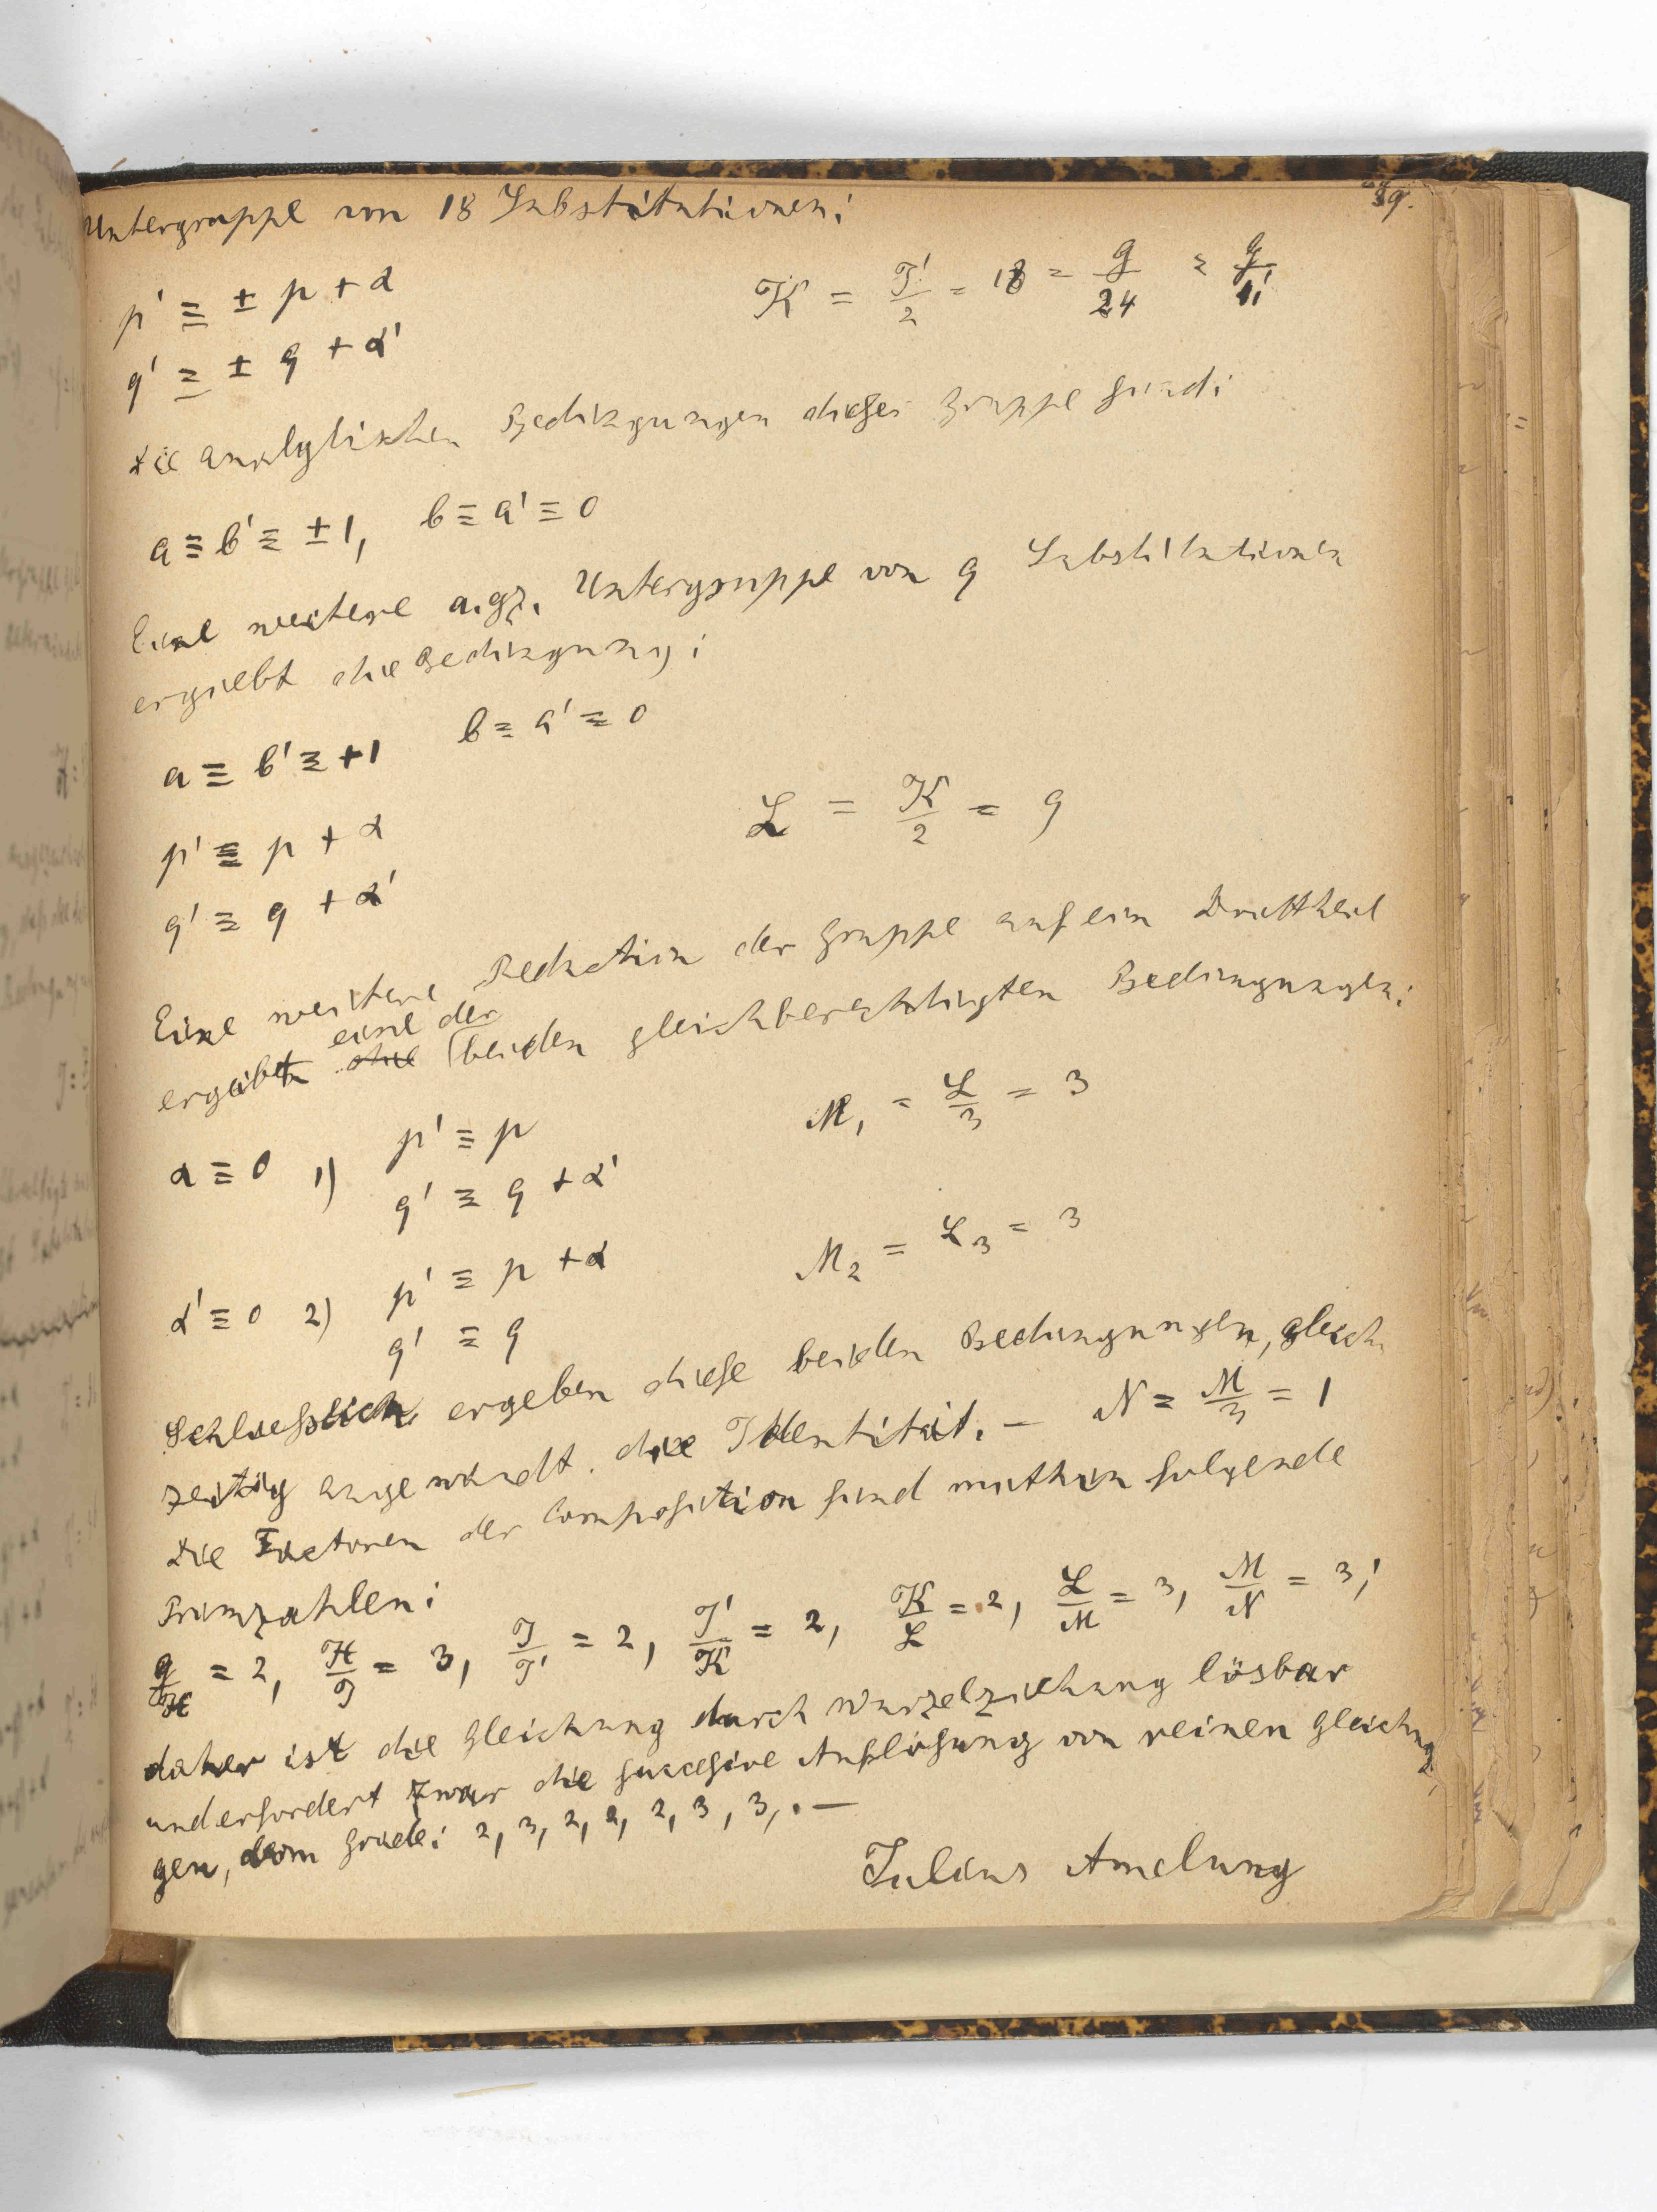 89.
Untergruppe von 18 Substitutionen:
p' ≡ ± p + α
K = J'/2 = 18 = G/24 = G/4!
q' ≡ ± q + α'
Die analytischen Bedingungen dieser Gruppe sind:
a ≡ b' ≡ ±1, b ≡ a' ≡ 0
Eine weitere a.gz. Untergruppe von 9 Substitutionen
ergiebt die Bedingung:
a ≡ b' ≡ +1 b ≡ a' ≡ 0
p' ≡ p + α
L = K/2 = 9
q' ≡ q + α'
Eine weitere Reduction der Gruppe auf ein Drittheil
eine der
ergiebt die beiden gleichberechtigten Bedingungen:
α ≡ 0 1) p' ≡ p
M₁ = L/3 = 3
q' ≡ q + α'
α' ≡ 0 2) p' ≡ p + α
M₂ = L 3 = 3
q' ≡ q
Schliesslich ergeben diese beiden Bedingungen, gleich
zeitig angewandt. die Identität. — N = M/3 = 1
Die Factoren der Composition sind mithin folgende
Primzahlen:
G/H = 2, H/J = 3, J/J' = 2, J'/K = 2, K/L = 2, L/M = 3, M/N = 3;
daher ist die Gleichung durch Wurzelziehung lösbar
und erfordert zwar die successive Auflösung von reinen Gleichun
gen, vom Grade: 2, 3, 2, 2, 2, 3, 3, . —
Julius Amelung